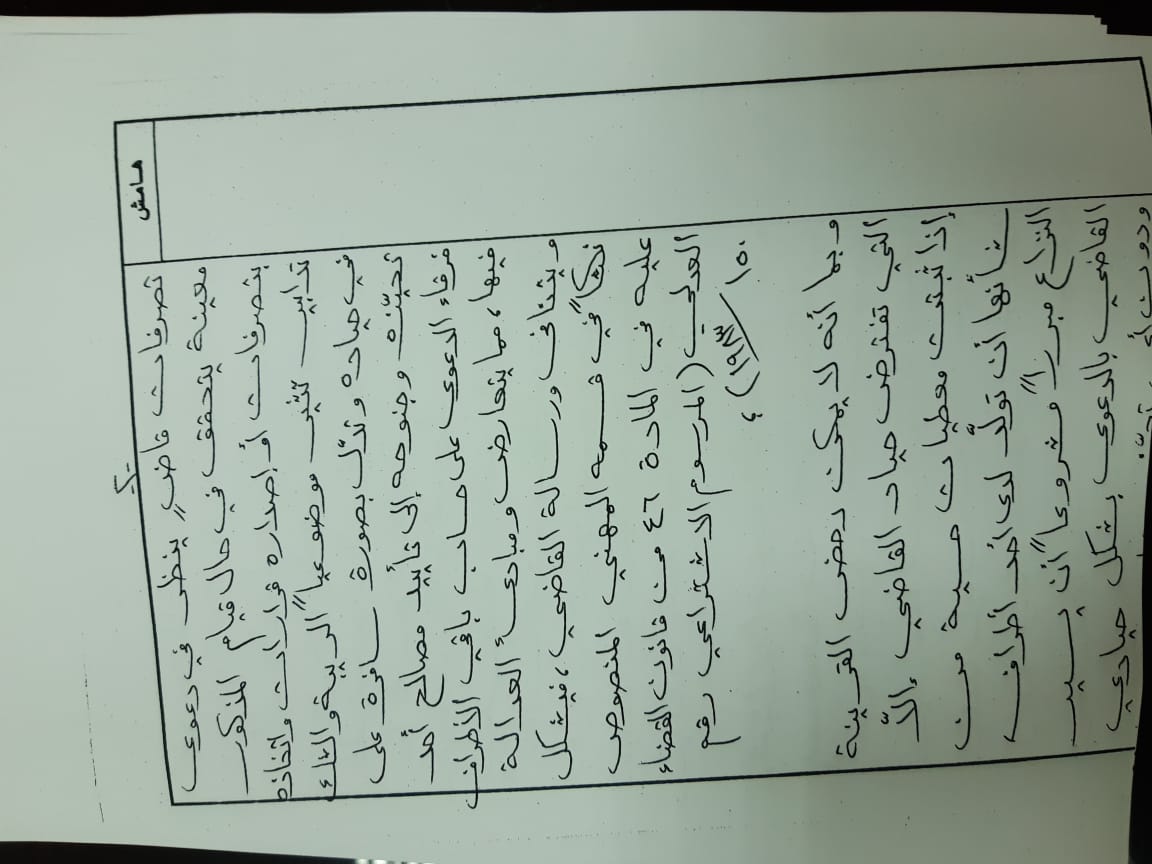 هامش
-ج-
تصرفات قاضٍ ينظر في دعوى
معينة يتحقق في حال قيام المذكور
بتصرفات أو إصداره قرارات واتخاذه
تدابير تثير موضوعياً الريبة والشك
في حياده وتدلّ بصورة سافرة على
تحيّزه وجنوحه إلى تأييد مصالح أحد
فرقاء الدعوى على حساب باقي الأطراف
فيها، مما يتعارض ومبادئ العدالة
ويتنافى ورسالة القاضي، فيشكل
نكثاً في قسمه المهني المنصوص
عليه في المادة ٤٦ من قانون القضاء
العدلي (المرسوم الاشتراعي رقم
١٥٠/١٩٨٣)؛
وبما أنه لا يمكن دحض القرينة
التي تفترض حياد القاضي، إلاّ
إذا ثبتت معطيات حسية من
شأنها أن تولّد لدى أحد أطراف
النزاع مبرراً مشروعاً أن يسير
القاضي بالدعوى بشكل حيادي
ودون أي